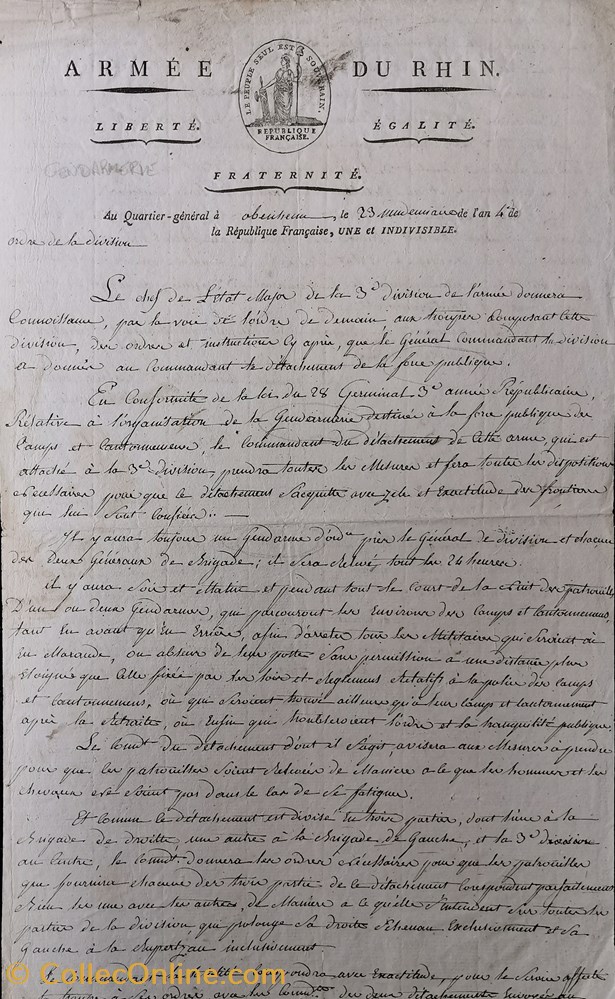 ARMÉE DU RHIN.
LE PEUPLE SEUL EST SOUVERAIN.
RÉPUBLIQUE
FRANÇAISE.
LIBERTÉ. ÉGALITÉ.
GENDARMERIE
FRATERNITÉ.
Au Quartier-général à obenheim, le 23 vendemiaire de l'an 4e de
la République Française, UNE et INDIVISIBLE.
ordre de la division
Le chef de l'état Major de la 3e division de l'armée donnera
Connoissance, par la voie de l'ordre de demain aux troupes Composant Cette
division, des ordres et instructions Cy après, que le Général Commandant la division
a donnés au Commandant le détachement de la force publique.
En Conformité de la loi du 28 Germinal 3e année Républicaine,
Rélative à l'organisation de la Gendarmerie destinée à la force publique des
Camps et Cantonnemens, le Commandant du détachement de Cette arme, qui est
attaché à la 3e division, prendra toutes les Mesures et fera toutes les dispositions
nécessaires pour que le détachement s'acquitte avec zele et Exactitude des fonctions
qui lui sont Confiées.
Il y aura toujours un Gendarme d'ord.ce près le Général de division et chacun
des deux Généraux de Brigade; il sera Relevé, tout les 24 heures.
il y aura soir et Matin et pendant tout le Court de la Nuit des patrouilles
D'un ou deux Gendarmes, qui parcouront les Environs des Camps et Cantonnemens,
tant En avant qu'En Arrière, afin d'arreter tous les Militaires qui seroient à
En Maraude, ou absens de leur poste sans permission à une distance plus
Eloignée que Celle fixée par les loix et Reglemens Rélatifs à la police des Camps
et Cantonnemens, où qui seroient trouvé ailleurs qu'à leur Camps et Cantonnement
après la Retraite, où Enfin qui troubleroient l'ordre et la tranquilité publique.
Le Comdt du détachement dont il s'agit, avisera aux Mesures à prendre
pour que les patrouilles soient Relevées de Maniere a ce que les hommes et les
chevaux ne soient pas dans le Cas de se fatiguer.
Et Comme le détachement est divisé En trois parties, dont l'une à la
Brigade de droitte, une autre à la Brigade de Gauche, et la 3e division
au Centre, le Comdt donnera les ordres nécessaires pour que les patrouilles
que fournira chacune des trois partie de ce détachement Corespondent parfaitement
bien les une avec les autres, de Maniere à ce qu'elle s'étendent sur toutes les
partie de la division, qui prolonge sa droite Exclusivement et sa
Gauche à la Ruprezau inclusivement.
avec Exactitude, pour le service
à ses ordres avec les Comdts des deux détachements Envoyés au
© CollecOnline.com